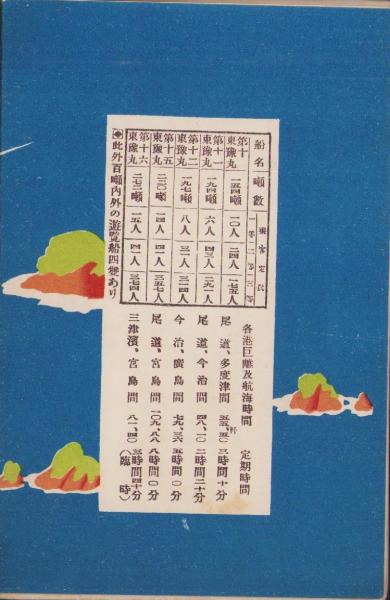 船名 噸數 旅客定員 一等 二等 三等
第十東豫丸 一五四噸 一〇人 二四人 一七五人
第十一東豫丸 一九四噸 六人 四三人 二九一人
第十二東豫丸 一九七噸 八人 三一人 三一四人
第十五東豫丸 二三〇噸 一四人 四一人 三五七人
第十六東豫丸 二七二噸 一五人 四一人 三七四人
◉此外百噸内外の遊覧船四雙あり
各港巨離及航海時間 定期時間
尾道、多度津間 五五、五〇 三時間十分
尾道、今治間 四八、一〇 二時間二十分
今治、廣島間 七九、三六 五時間〇分
尾道、宮島間 一〇九、八八 八時間〇分
三津濱、宮島間 八一、四〇 五時間四十分(臨時)